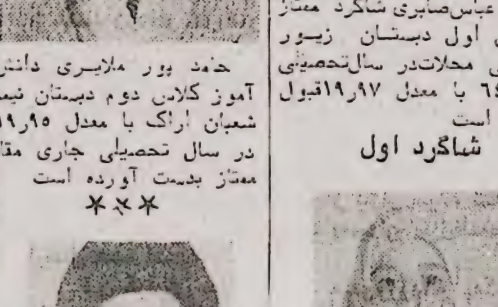 عباس‌صابری شاگرد ممتاز
اول دبستان زیور
محلات‌در سال‌تحصیلی
با معدل ۱۹ر۹۷قبول
است
شاگرد اول
حامد پور ملایری دانش
آموز کلاس دوم دبستان نیمه
شعبان اراک با معدل ۱۹ر۹۵
در سال تحصیلی جاری مقام
ممتاز بدست آورده است
***